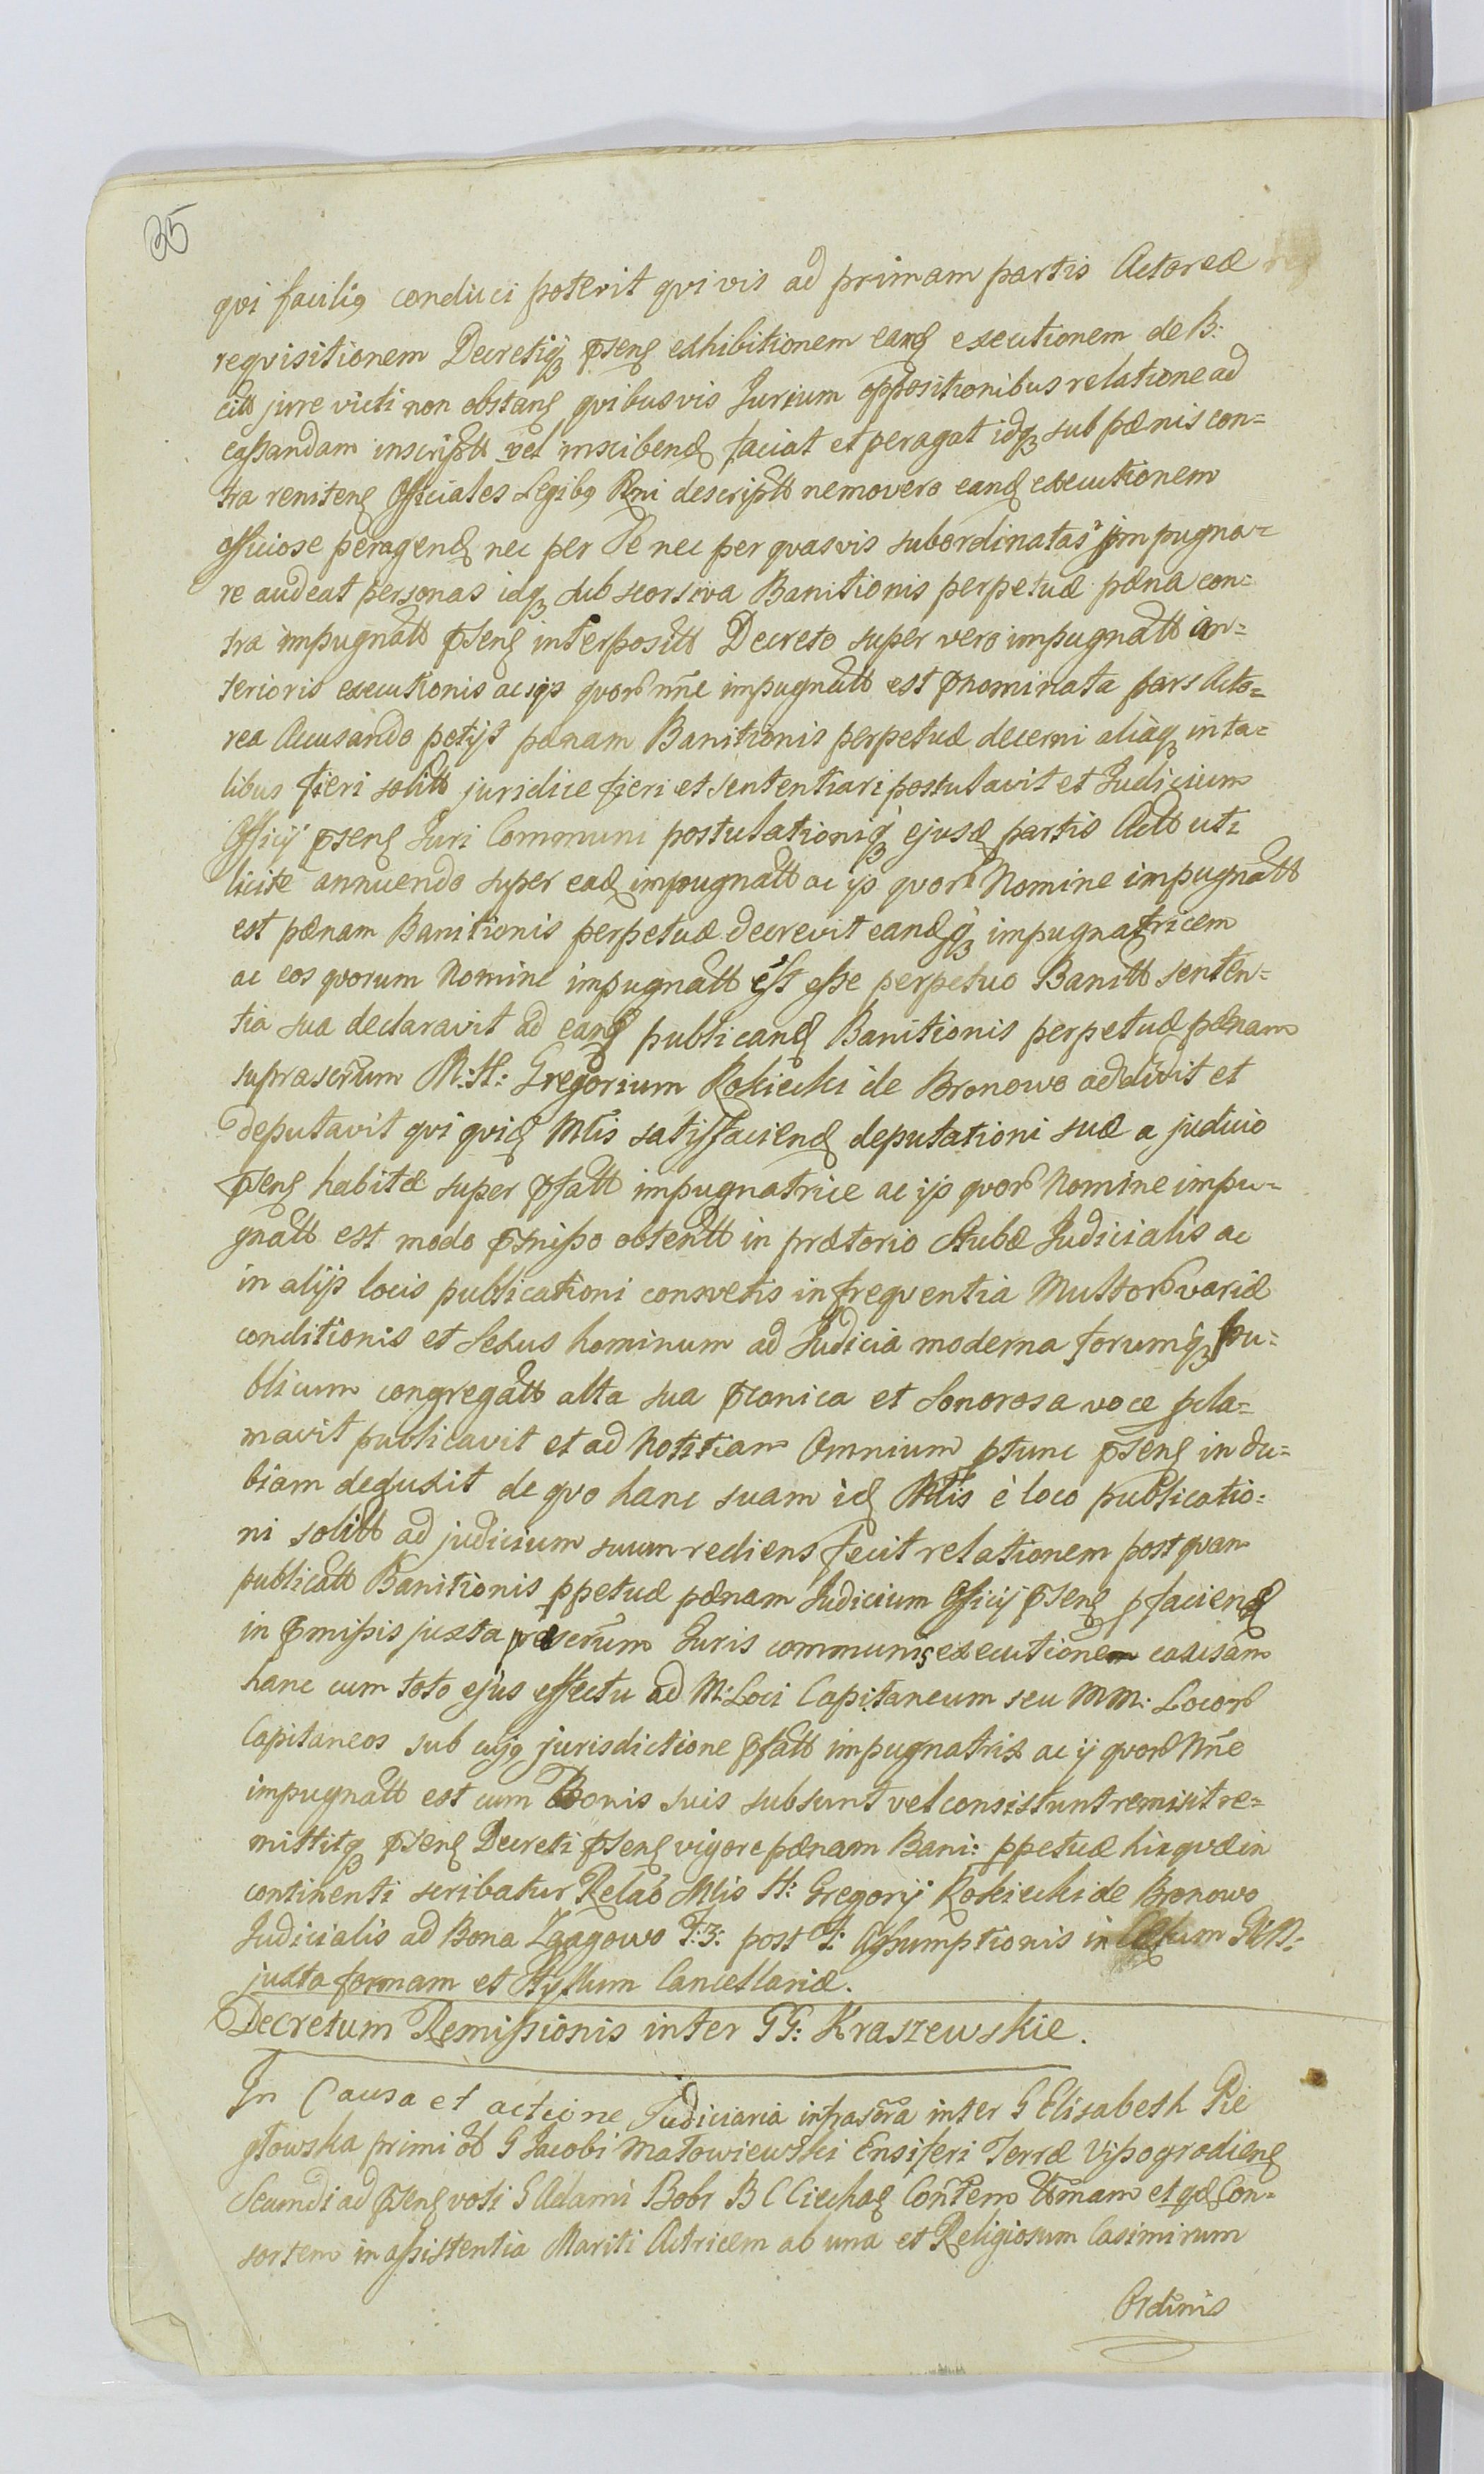 35
qvi faciliꝯ conduci poterit qvi vis ad primam partis Actoreæ
reqvisitionem Decretiqꝫ p̄sens exhibitionem eand executionem de B:
citt jure victi non obstans qvibusvis Jurium oppositionibus relatione ad
cassandam inscriptt vel inscibend faciat et peragat idqꝫ sub pænis con=
tra renitens Officiales Legibꝯ Rni descriptt nemo vero eand executionem
officiose peragend nec per Se nec per qvasvis subordinatas impugna=
re audeat personas idqꝫ sub seorsiva Banitionis perpetuæ pæna con=
tra impugnatt p̄sens interpositt Decreto super vero impugnatt an=
terioris executionis ac ijs qvorꝫ nñe impugnatt est p̄nominata pars Acto=
rea Accusando petijt pænam Banitionis perpetuæ decerni aliaqꝫ in ta=
libus fieri solitt juridice fieri et sententiari postulavit et Judicium
Officij p̄sens Juri Communi postulationiqꝫ ejusd partis Actt uti
licite annuendo super ead impugnatt ac ijs qvorꝫ Nomine impugnatt
est pænam Banitionis perpetuæ decrevit eandqꝫ impugnatricem
ac eos qvorum Nomine impugnatt est esse perpetuo Banitt senten=
tia sua declaravit ad eand publicand Banitionis perpetuæ pænam
suprascr̃um M: H: Gregorium Rokicki de Bronowo addidit et
deputavit qvi qvid Mlis satisfaciend deputationi suæ a judicio
p̄sens habitæ super p̄fatt impugnatrice ac ijs qvorꝫ Nomine impu=
gnatt est modo p̄misso obtentt in prætorio Stubæ Judicialis ac
in alijs locis publicationi consvetis in freqventia Multorꝫ variæ
conditionis et Sexus hominum ad Judicia moderna forumqꝫ pu=
blicum congregatt alta sua p̄conica et Sonorosa voce pcla=
mavit publicavit et ad Notitiam Omnium ptunc p̄sens in du=
biam deduxit de qvo hanc suam id Mlis è loco publicatio=
ni solitt ad judicium suum rediens fecit relationem post qvam
publicatt Banitionis ppetuæ pænam Judicium Officij p̄sens p faciend
in p̄missis juxta præscr̃um Juris communis executionem causam
hanc cum toto ejus effectu ad M: Loci Capitaneum seu MM: Locorꝫ
Capitaneos sub cujꝯ jurisdictione p̄fatt impugnatrix ac ij qvorꝫ Nñe
impugnatt est cum Bonis suis subsunt vel consistunt remisit re=
mittitqꝫ p̄sens Decreti p̄sens vigore pænam Bani: ppetuæ hicqvæ in
continenti scribatur Relaõ Mlis H: Gregorij Rokicki de Bronowo
Judicialis ad Bona Zgagowo F: 3: post F: Assumptionis in Cælum
juxta formam et Styllum Cancellariæ.
Decretum Remissionis inter GG: Kraszewskie.
In Causa et actione Judiciaria infrascr̃a inter G Elisabeth Pie
głowska primi olt G Jacobi Małowiewski Ensiferi Terræ Vissogradiens
Secundi ad p̄sens voti G Adami Bobr B C Ciechas Con̄tem
sortem in assistentia Mariti Actricem ab una et Religiosum Casimirum
Ordinis